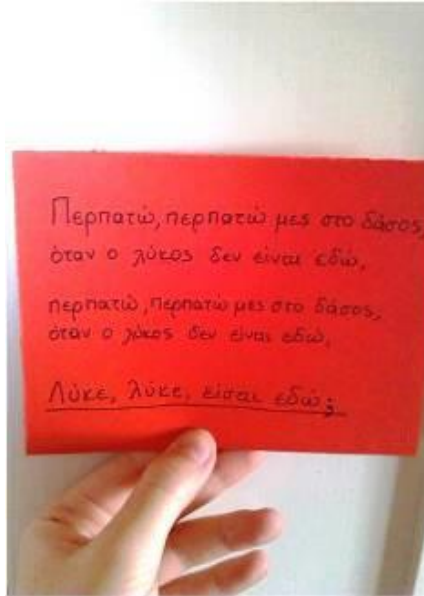 Περπατώ, περπατώ μες στο δάσος,
όταν ο λύκος δεν είναι εδώ,
περπατώ, περπατώ μες στο δάσος,
όταν ο λύκος δεν είναι εδώ,
Λύκε, λύκε, είσαι εδώ;